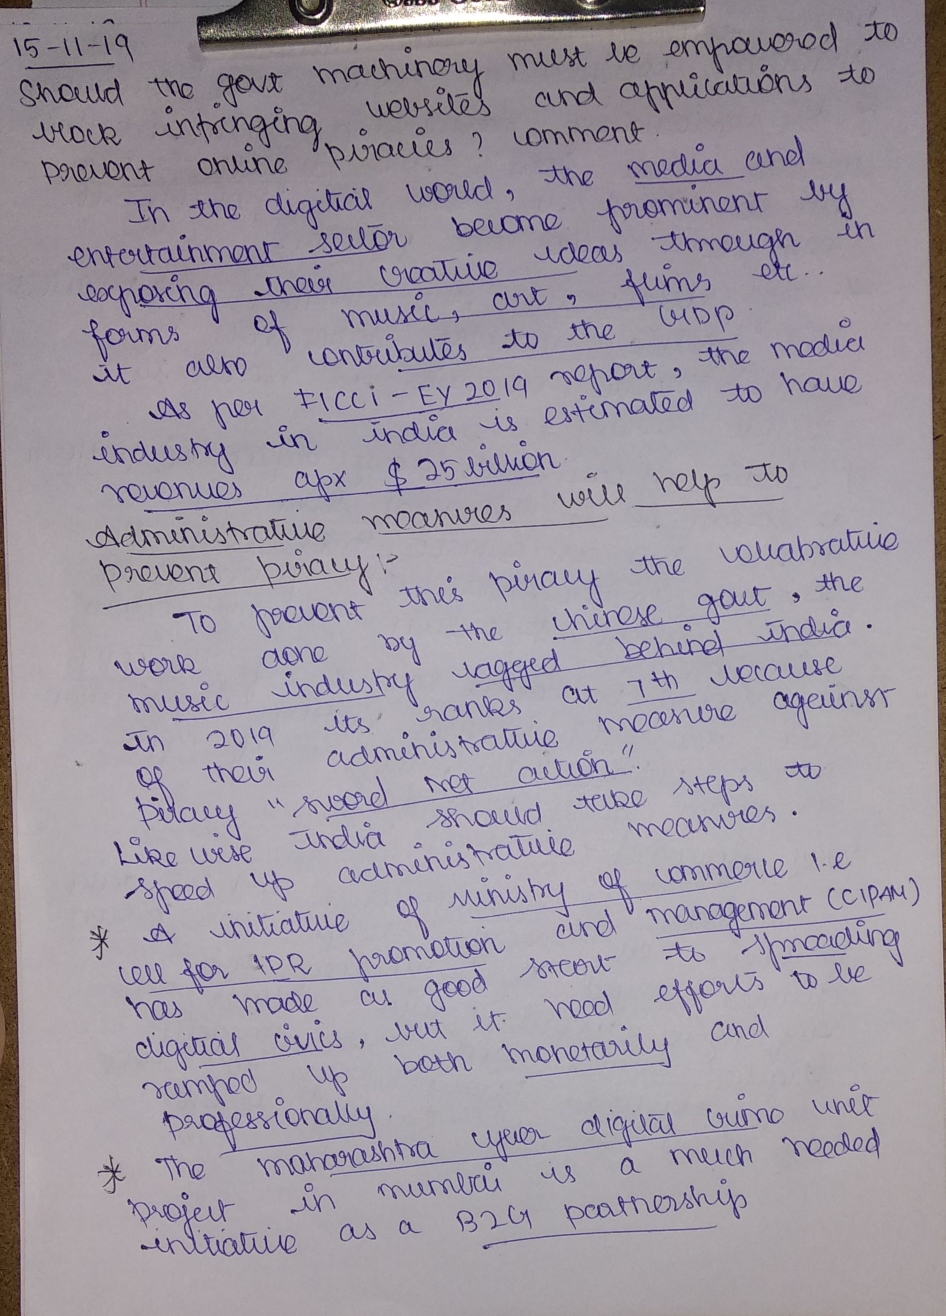 15-11-19
Should the govt machinery must be empowered to
block infringing websites and applications to
prevent online piracies? comment.
In the digitial world, the media and
entertainment sector become prominent by
exposing their creative ideas through in
forms of music, art, films etc..
it also contributes to the GDP
As per FICCi - EY 2019 report, the media
industry in india is estimated to have
revenues apx $ 25 billion
Administrative measures will help to
prevent piracy :-
To prevent this piracy the collabrative
work done by the chinese govt, the
music industry lagged behind india.
In 2019 its ranks at 7th because
of their administrative measure against
piracy "sword net action".
Like wise India should take steps to
speed up administrative measures.
* A initiative of ministry of commerce i.e
cell for IPR promotion and management (CIPAM)
has made a good start to spreading
digitial civics, but it need efforts to be
ramped up both monetarily and
professionally.
* The maharashtra cyber digital crime unit
project in mumbai is a much needed
initiative as a B2G partnership